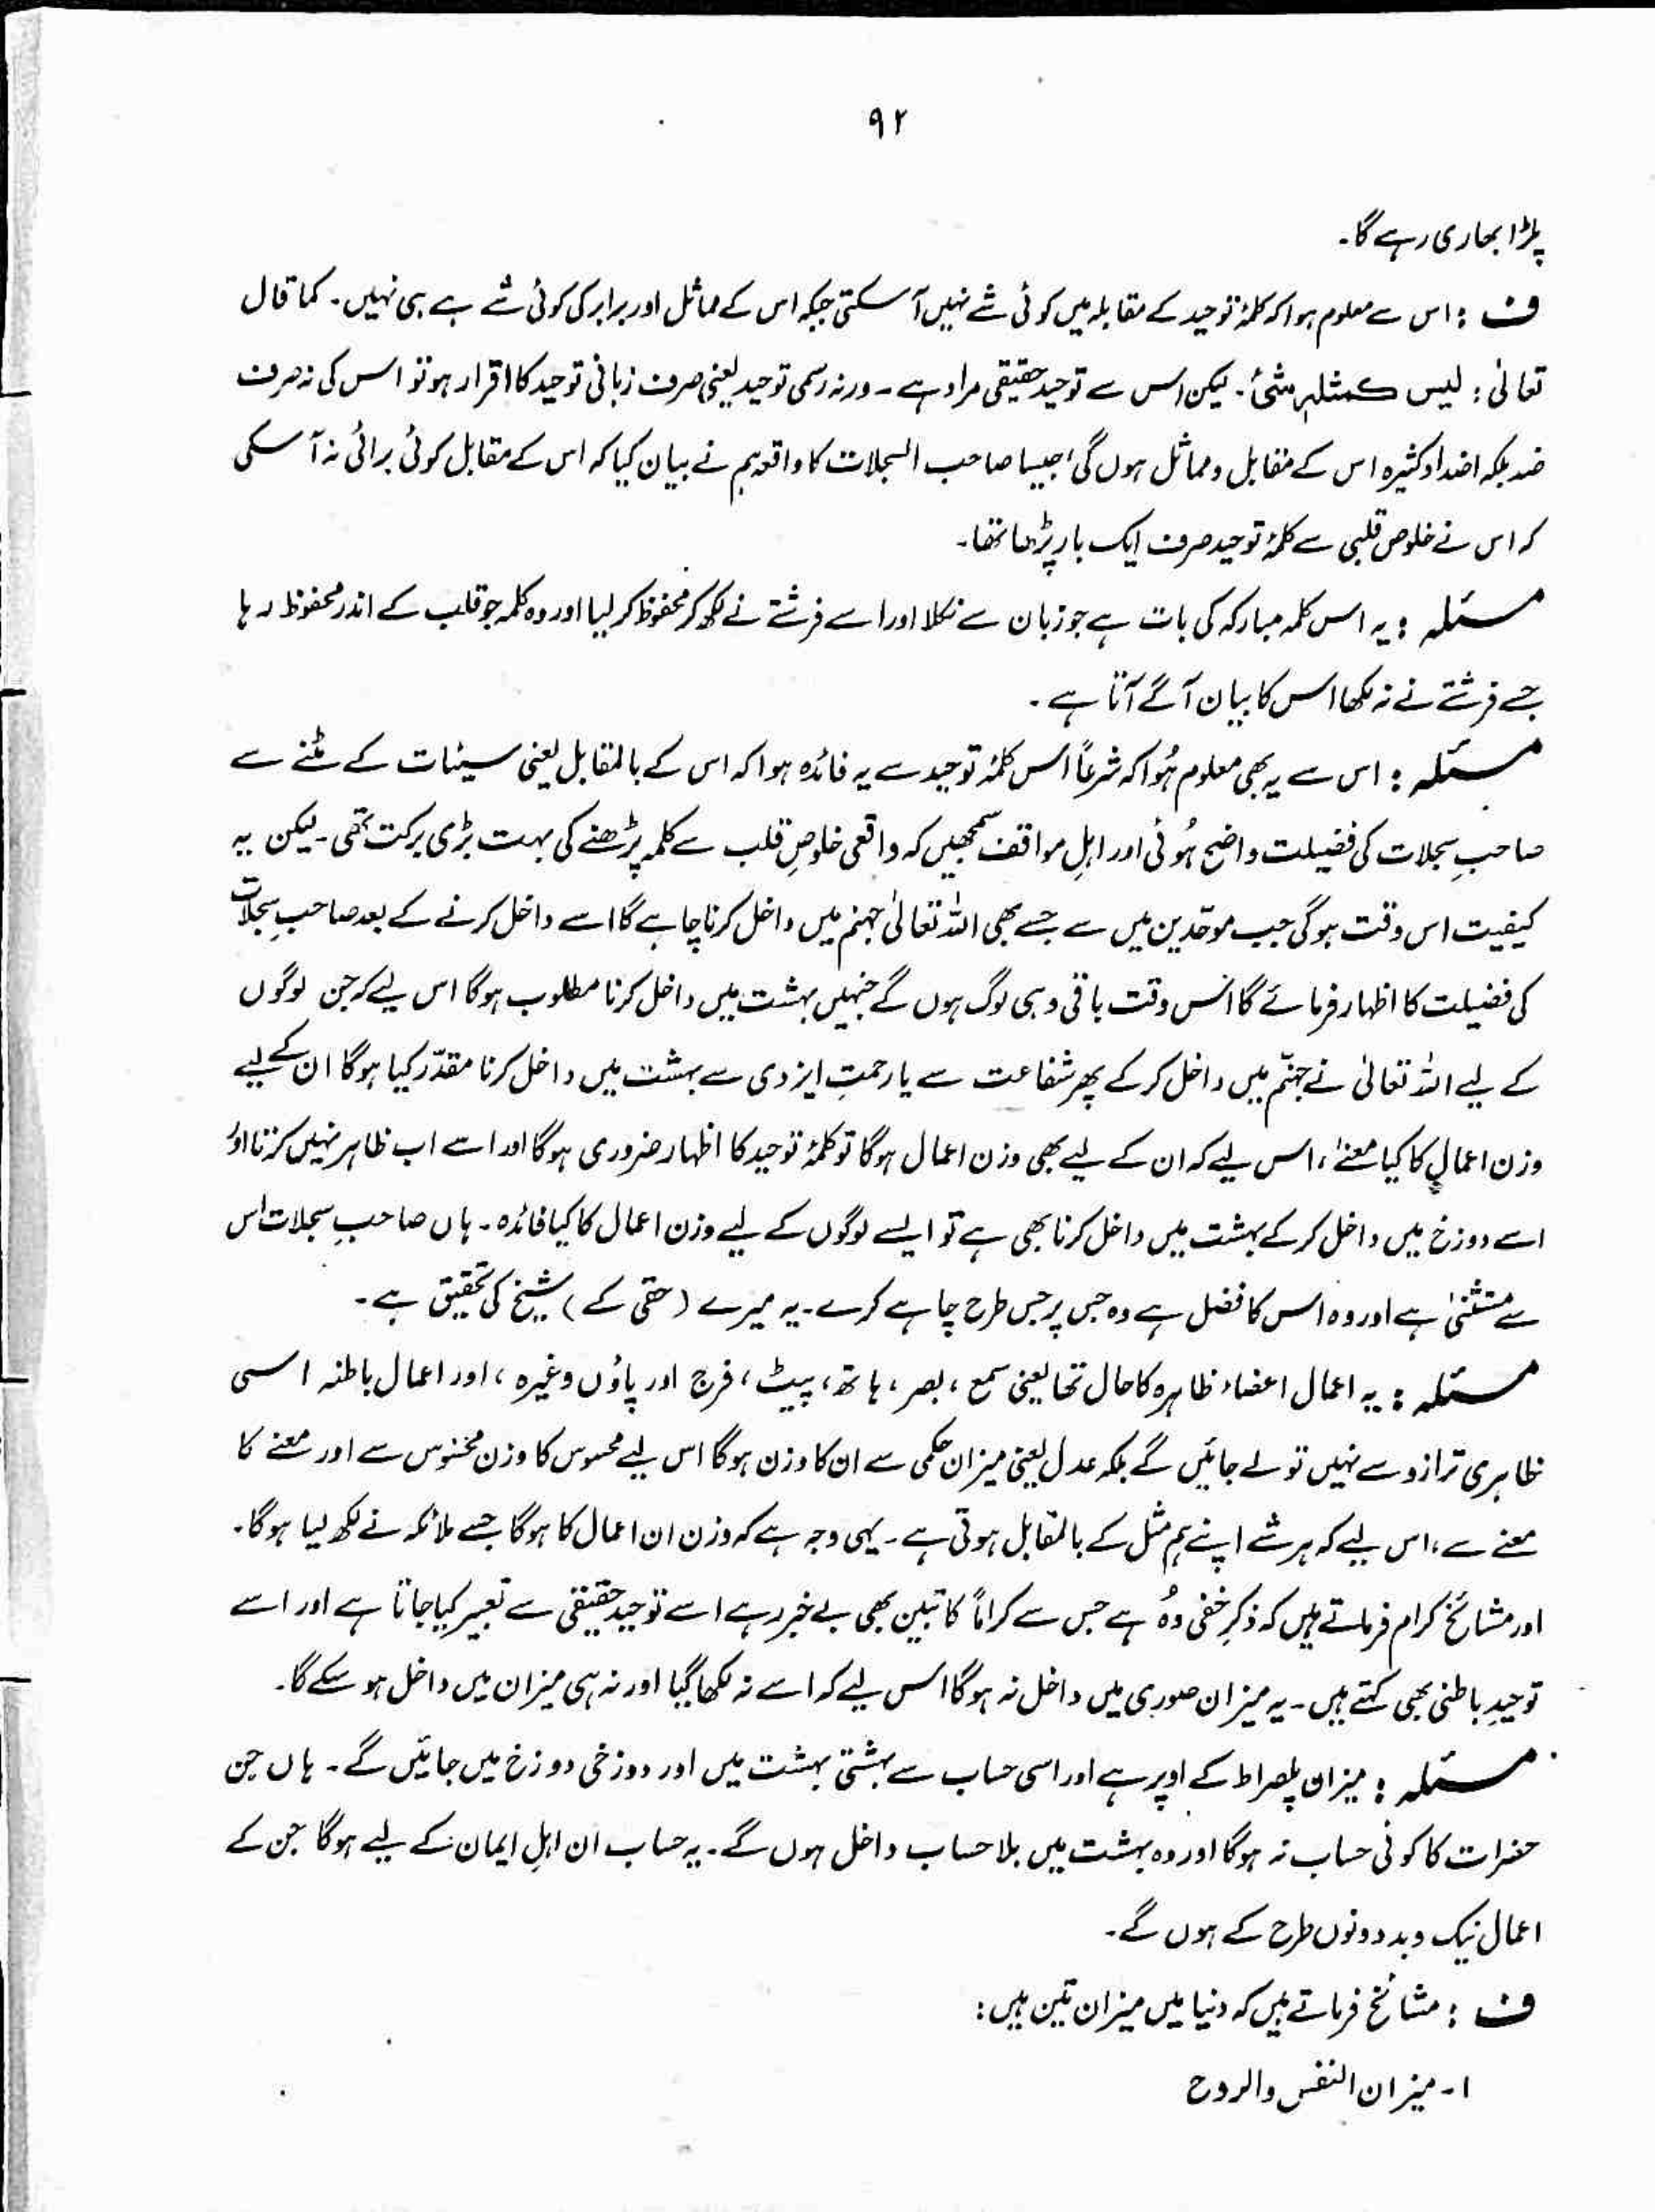 ۹۲
پلڑا بھاری رہے گا۔
ف : اس سے معلوم ہوا کہ کلمۂ توحید کے مقابلہ میں کوئی شے نہیں آ سکتی جبکہ اس کے مماثل اور برابر کی کوئی شے ہے ہی نہیں۔ کما قال
تعالیٰ : لیس کمثلہٖ شئ۔ لیکن اس سے توحید حقیقی مراد ہے۔ ورنہ رسمی توحید یعنی صرف زبانی توحید کا اقرار ہو تو اس کی نہ صرف
ضد بلکہ اضداد کثیرہ اس کے مقابل و مماثل ہوں گی، جیسا صاحب السجلات کا واقعہ ہم نے بیان کیا کہ اس کے مقابل کوئی برائی نہ آ سکی
کہ اس نے خلوص قلبی سے کلمۂ توحید صرف ایک بار پڑھا تھا۔
مسئلہ : یہ اس کلمہ مبارکہ کی بات ہے جو زبان سے نکلا اور اسے فرشتے نے لکھ کر محفوظ کر لیا اور وہ کلمہ جو قلب کے اندر محفوظ رہا
جسے فرشتے نے نہ لکھا اس کا بیان آگے آتا ہے۔
مسئلہ : اس سے یہ بھی معلوم ہُوا کہ شرعاً اس کلمۂ توحید سے یہ فائدہ ہوا کہ اس کے بالمقابل یعنی سیئات کے مٹنے سے
صاحبِ سجلات کی فضیلت واضح ہُوئی اور اہلِ مواقف سمجھیں کہ واقعی خلوصِ قلب سے کلمہ پڑھنے کی بہت بڑی برکت تھی۔ لیکن یہ
کیفیت اس وقت ہو گی جب موحّدین میں سے جسے بھی اللہ تعالیٰ جہنم میں داخل کرنا چاہے گا اسے داخل کرنے کے بعد صاحبِ سجلات
کی فضیلت کا اظہار فرمائے گا اس وقت باقی وہی لوگ ہوں گے جنہیں بہشت میں داخل کرنا مطلوب ہوگا اس لیے کہ جن لوگوں
کے لیے اللہ تعالیٰ نے جہنّم میں داخل کر کے پھر شفاعت سے یا رحمتِ ایزدی سے بہشت میں داخل کرنا مقدّر کیا ہوگا ان کے لیے
وزن اعمال کا کیا معنےٰ، اس لیے کہ ان کے لیے بھی وزن اعمال ہوگا تو کلمۂ توحید کا اظہار ضروری ہوگا اور اسے اب ظاہر نہیں کرنا اور
اسے دوزخ میں داخل کر کے بہشت میں داخل کرنا بھی ہے تو ایسے لوگوں کے لیے وزن اعمال کا کیا فائدہ۔ ہاں صاحبِ سجلات اس
سے مستثنیٰ ہے اور وہ اس کا فضل ہے وہ جس پر جس طرح چاہے کرے۔ یہ میرے (حقی کے) شیخ کی تحقیق ہے۔
مسئلہ : یہ اعمال اعضاء ظاہرہ کا حال تھا یعنی سمع، بصر، ہاتھ، پیٹ، فرج اور پاؤں وغیرہ، اور اعمال باطنہ اسی
ظاہری ترازو سے نہیں تولے جائیں گے بلکہ عدل یعنی میزان حکمی سے ان کا وزن ہوگا اس لیے محسوس کا وزن محسوس سے اور معنے کا
معنے سے، اس لیے کہ ہر شے اپنے ہم مثل کے بالمقابل ہوتی ہے۔ یہی وجہ ہے کہ وزن ان اعمال کا ہوگا جسے ملائکہ نے لکھ لیا ہوگا۔
اور مشائخ کرام فرماتے ہیں کہ ذکرِ خفی وہُ ہے جس سے کراماً کاتبین بھی بے خبر رہے اسے توحید حقیقی سے تعبیر کیا جاتا ہے اور اسے
توحیدِ باطنی بھی کہتے ہیں۔ یہ میزان صوری میں داخل نہ ہوگا اس لیے کہ اسے نہ لکھا گیا اور نہ ہی میزان میں داخل ہو سکے گا۔
مسئلہ : میزان پلصراط کے اوپر ہے اور اسی حساب سے بہشتی بہشت میں اور دوزخی دوزخ میں جائیں گے۔ ہاں جن
حضرات کا کوئی حساب نہ ہوگا اور وہ بہشت میں بلا حساب داخل ہوں گے۔ یہ حساب ان اہلِ ایمان کے لیے ہوگا جن کے
اعمال نیک و بد دونوں طرح کے ہوں گے۔
ف : مشائخ فرماتے ہیں کہ دنیا میں میزان تین ہیں :
۱۔ میزان النفس والروح